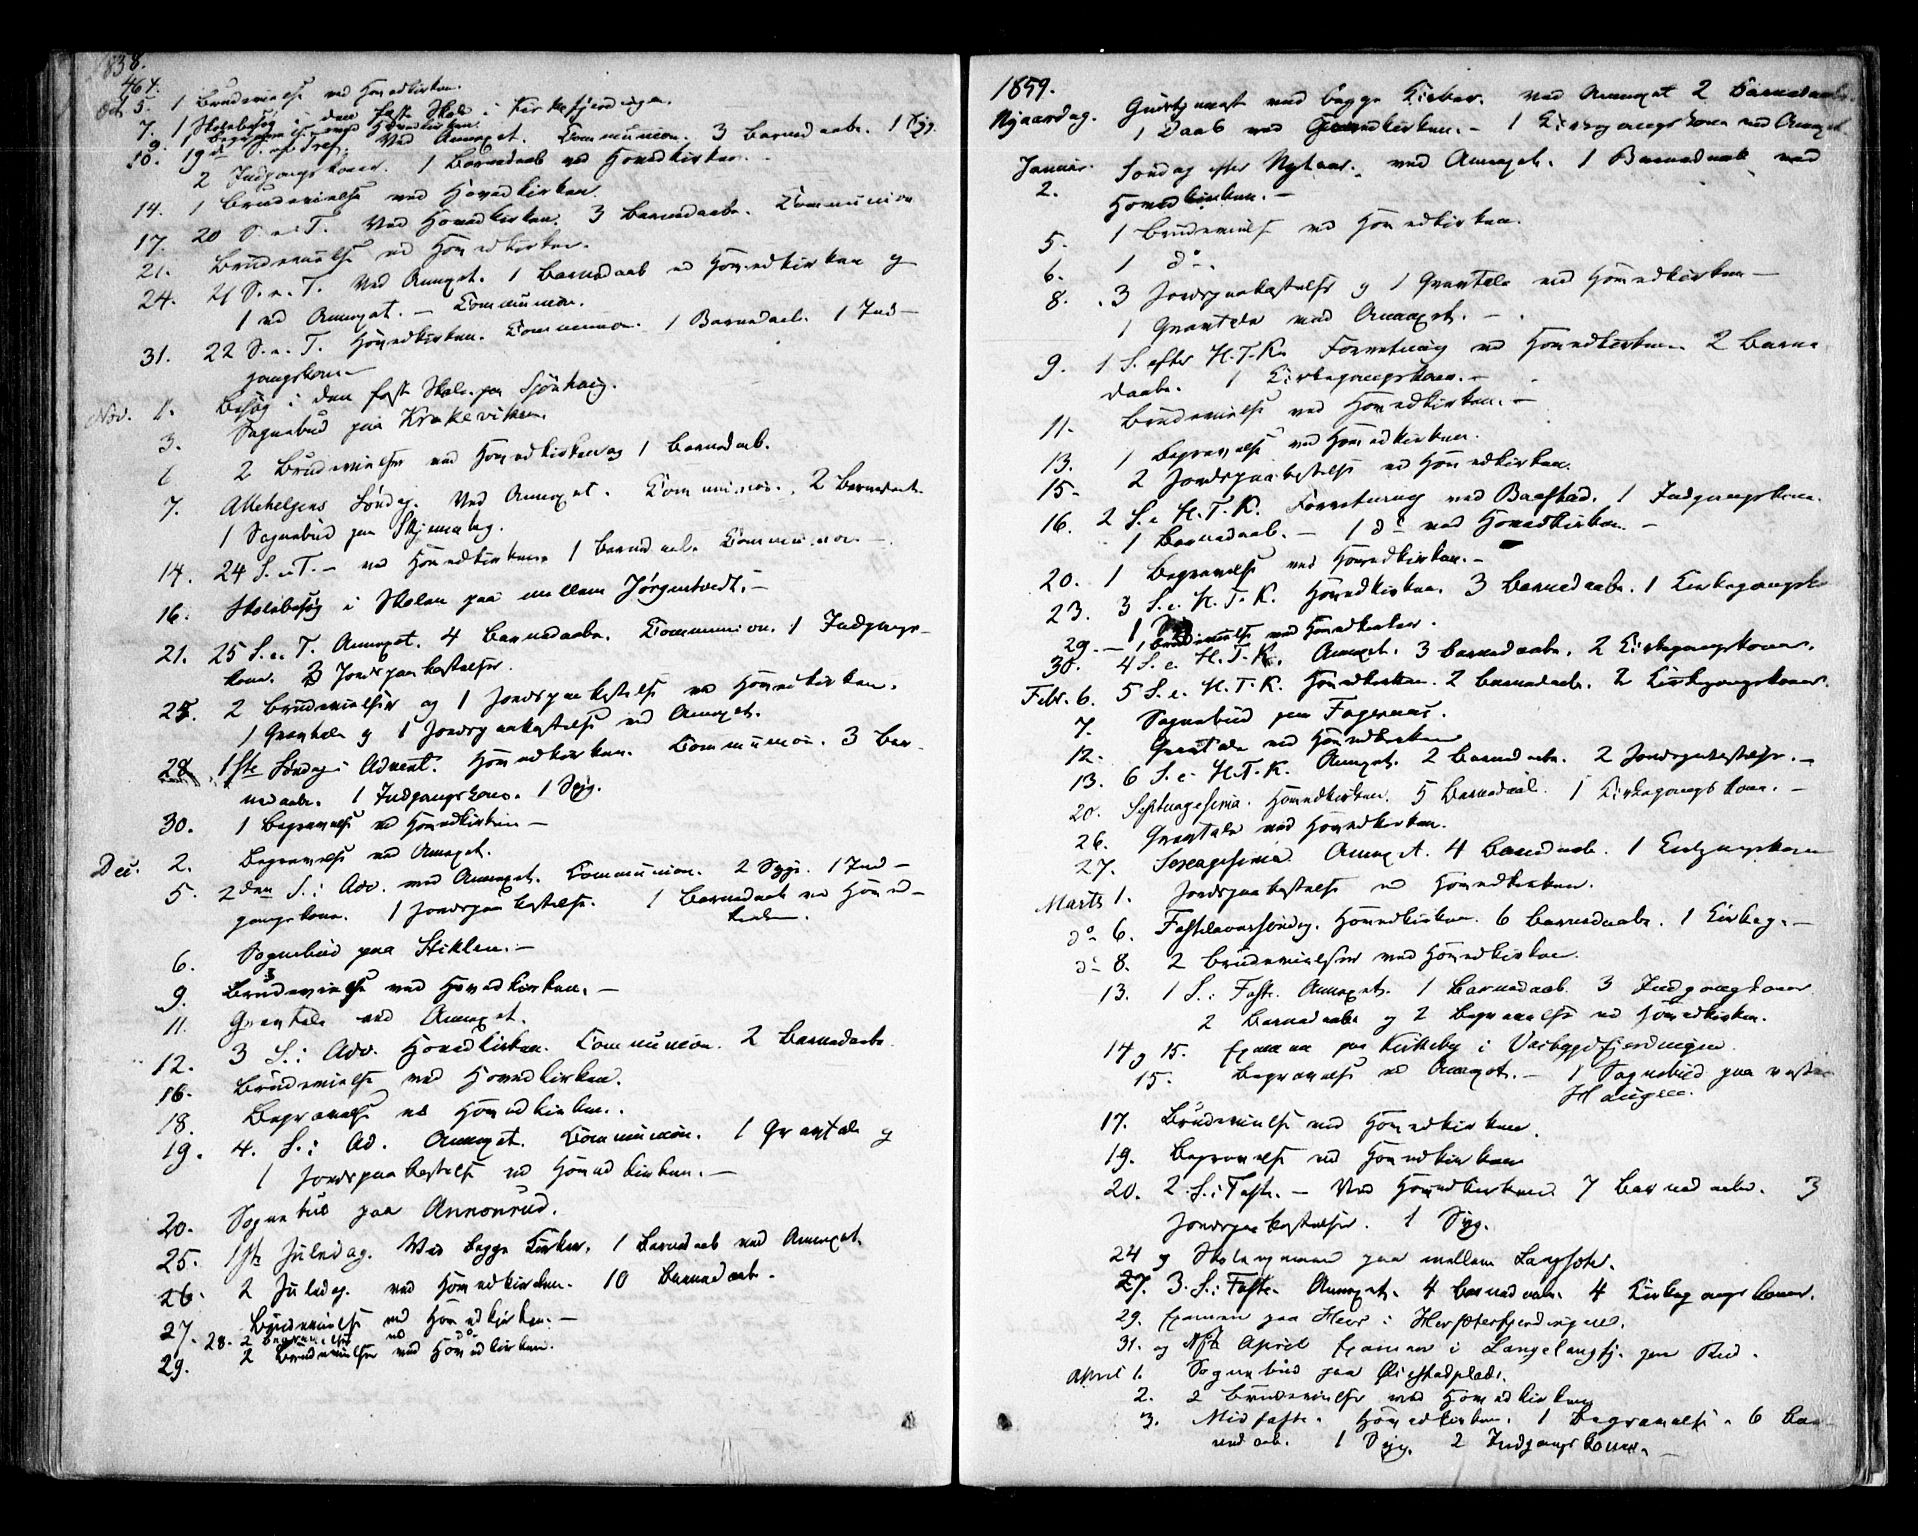 1858.
464.
Oct. 5. 1 Brudevielse ved Hovedkirken.
7. 1 Skolebesøg i den faste Skole i Kirkefjerdingen.
9. 1 Begravelse ved Hovedkirken.
10. 19de S. ef. Tref. Ved Annexet. Communion. 3 Barnedaab. 1 Syg.
2 Indgangskoner. 1 Barnedaab ved Hovedkirken.
14. 1 Brudevielse ved Hovedkirken
17. 20 S. e. T. Ved Hovedkirken. 3 Barnedaab. Communion
21. Brudevielse ved Hovedkirken.
24. 21 S. e. T. Ved Annexet. 1 Barnedaab ved Hovedkirken og
1 ved Annexet. – Communion.
31. 22 S. e. T. Hovedkirken. Communion. 1 Barnedaab. 1 Ind-
gangskone
Nov. 1. Besøg i den faste Skole paa Sjønhaug.
3. Sognebud paa Krakeviken.
6 2 Brudevielser ved Hovedkirken og 1 Barnedaab.
7. Allehelgens Søndag. Ved Annexet. Communion. 2 Barnedaab
1 Sognebud paa Skjennaleg.
14. 24 S. e. T. – ved Hovedkirken 1 Barnedaab Communion –
16. Skolebesøg i Skolen paa mellem Jørgentvedt. –
21. 25 S. e. T. Annexet. 4 Barnedaab. Communion. 1 Indgangs-
kone. 3 Jordspaakastelser.
25. 2 Brudevielser og 1 Jordspaakastelse ved Hovedkirken.
1 Gravtale og 1 Jordspaakastelse ved Annexet.
28. 1ste Søndag i Advent. Hovedkirken. Communion. 3 Bar-
nedaab. 1 Indgangskone. 1 Syg.
30. 1 Begravelse ved Hovedkirken –
Dec. 2. Begravelse ved Annexet.
5. 2den S. i Adv. ved Annexet. Communion. 2 Syge. 1 Ind-
gangskone. 1 Jordspaakastelse. 1 Barnedaab ved Hoved-
kirken.
6. Sognebud paa Stiklen. –
9. 3 Brudevielse ved Hovedkirken. –
11. Gravtale ved Annexet.
12. 3 S. i Adv. Hovedkirken. Communion. 2 Barnedaab
16. Brudevielse ved Hovedkirken.
18. Begravelse ved Hovedkirken.
19. 4. S. i Ad. Annexet. Communion. 1 Gravtale og
1 Jordspaakastelse ved Hovedkirken. –
20. Sognebud paa Annonrud.
25. 1ste Juledag. Ved begge Kirker. 1 Barnedaab ved Annexet.
26. 2 Juledag. ved Hovedkirken. 10 Barnedaab.
27. Brudevielse ved Hovedkirken. –
28. 2 Begravelser ved do
29. 2 Brudevielser ved Hovedkirken.
1859.
Nyaarsdag. Gudstjeneste ved begge Kirker. ved Annexet 2 Barnedaab.
1 Daab ved Hovedkirken. – 1 Kirkegangskone ved Annexet
Januar 2. Søndag efter Nytaar. ved Annexet. 1 Barnedaab ved
Hovedkirken. –
5. 1 Brudevielse ved Hovedkirken.
6. 1 do.
8. 3 Jordspaakastelser og 1 Gravtale ved Hovedkirken –
1 Gravtale ved Annexet. –
9. 1 S. efter H. T. K. Forretning ved Hovedkirken 2 Barne
daab. 1 Kirkegangskone. –
11. Brudevielse ved Hovedkirken. –
13. 1 Begravelse ved Hovedkirken.
15. 2 Jordspaakastelse ved Hovedkirken.
16. 2 S. e. H. T. K. Forretning ved Baastad. 1 Indgangskone.
1 Barnedaab. – 1 do ved Hovedkirken. –
20. 1 Begravelse ved Hovedkirken. –
23. 3 S. e. H. T. K. Hovedkirken. 3 Barnedaab. 1 Kirkegangsk
29. – 1 Brudevielse ved Hovedkirken.
30. 4 S. e. H. T. K. Annexet. 3 Barnedaab. 2 Kirkegangskoner.
Febr. 6. 5 S. e. H. T. K. Hovedkirken. 2 Barnedaab. 2 Kirkegangskoner.
7. Sognebud paa Fagernæs.
12. Gravtale ved Hovedkirken
13. 6 S. e. H. T. K. Annexet. 2 Barnedaab. 2 Jordspakastelser. –
20. Septuagesima. Hovedkirken. 5 Barnedaab. 1 Kirkegangskone. –
26. Gravtale ved Hovedkirken.
27. Sexagesima. Annexet. 4 Barnedaab. 1 Kirkgangskone
Marts 1. Jordspaakastelse ved Hovedkirken.
do 6. Fastelavnssøndag. Hovedkirken. 6 Barnedaab. 1 Kirkeg. –
do 8. 2 Brudevielser ved Hovedkirken.
13. 1 S. i Faste. Annexet. 1 Barnedaab. 3 Indgangskoner
2 Barnedaab og 2 Begravelse ved Hovedkirken.
14 og 15. Examen paa Kirkeby i Vasbygdfjerdingen.
15. Begravelse ved Annexet. – 1 Sognebud paa vestre
Haugen.
17. Brudevielse ved Hovedkirken.
19. Begravelse ved Hovedkirken
20. 2 S. i Faste. – Ved Hovedkirken 7 Barnedaab. 3
Jordspaakastelser. 1 Syg.
24 og Skoleexamen paa mellem Langsæter.
27. 3. S. i Faste. Annexet. 4 Barnedaab. 4 Kirkegangskoner.
29. Examen paa Heer i Hersæterfjerdingen.
31. og 1ste April Examen i Langelangfj. paa Rud.
April 1. Sognebud paa Øiestadplads.
2. 2 Brudevielser ved Hovedkirken
3. Midfaste. Hovedkirken. 1 Begravelse. 6 Bar-
nedaab. 1 Syg. 2 Indgangskoner. –